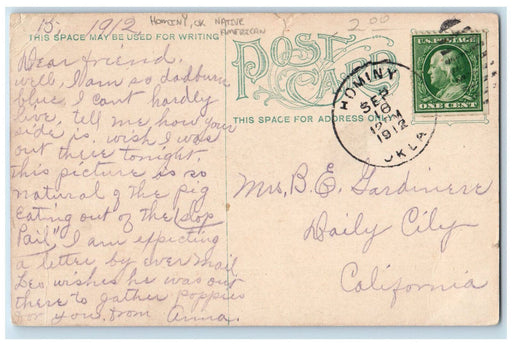 15. 1912
HOMINY, OK NATIVE
AMERICAN
2.00
THIS SPACE MAY BE USED FOR WRITING
POST
CARD
THIS SPACE FOR ADDRESS ONLY
U.S. POSTAGE
ONE CENT
HOMINY
SEP
10
12 M
1912
OKLA
Dear friend.
well, I am so dadburn
blue I cant hardly
live, tell me how your
side is. wish I was
out there tonight.
this picture is so
natural of the pig
eating out of the "slop
Pail", I am expecting
a letter by ever mail
Leo wishes he was out
there to gather poppies
for you. from Anna.
Mrs, B. E. Gardiniere
Daily City
California